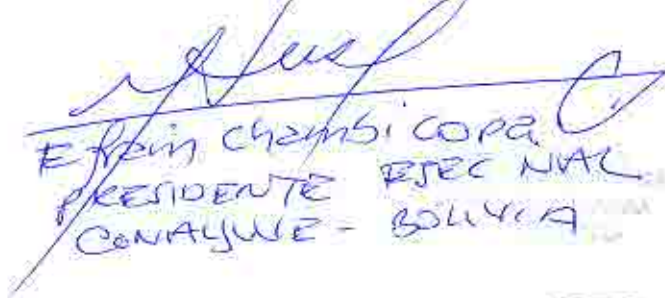 Efrain Chambi Copa
PRESIDENTE EJEC NAL
CONALJUVE - BOLIVIA